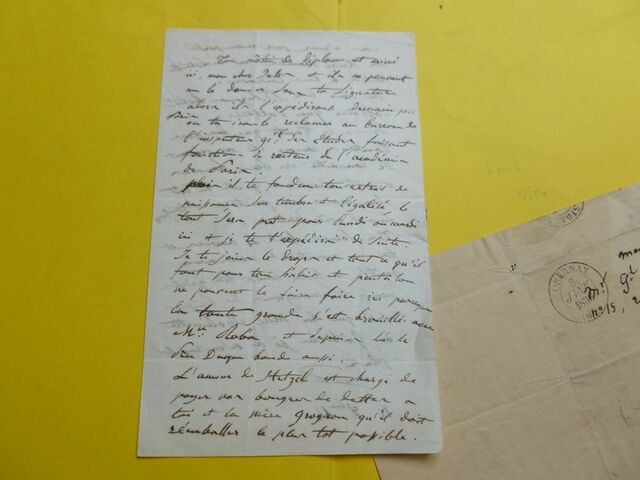 Ton maître de diplome est arrivé
ici, mon cher Jules et ils ne peuvent
me le donner sans ta signature
alors ils l'expédieront demain pour
Paris
où tu iras le réclamer au bureau de
l'inspecteur gl des Etudes faisant
fonctions de recteur de l'académie
de Paris.
puis il te faudra ton extrait de
naissance sur timbre et légalisé le
tout sera prêt pour lundi ou mardi
ici et je te l'expédierai de suite
Je te joins le drap et tout ce qu'il
faut pour ton habit et pantalon
ne pouvant le faire faire ici parceque
la tante grande s'est brouillée avec
Mme et depuis là le
bonde aussi.
L'amour de Hetzel est chargé de
payer nos bougres de dettes à
tus et la mère grognon qu'il doit
remballer le plus tot possible.
EPERNAY
Mr gl
No 15, 2